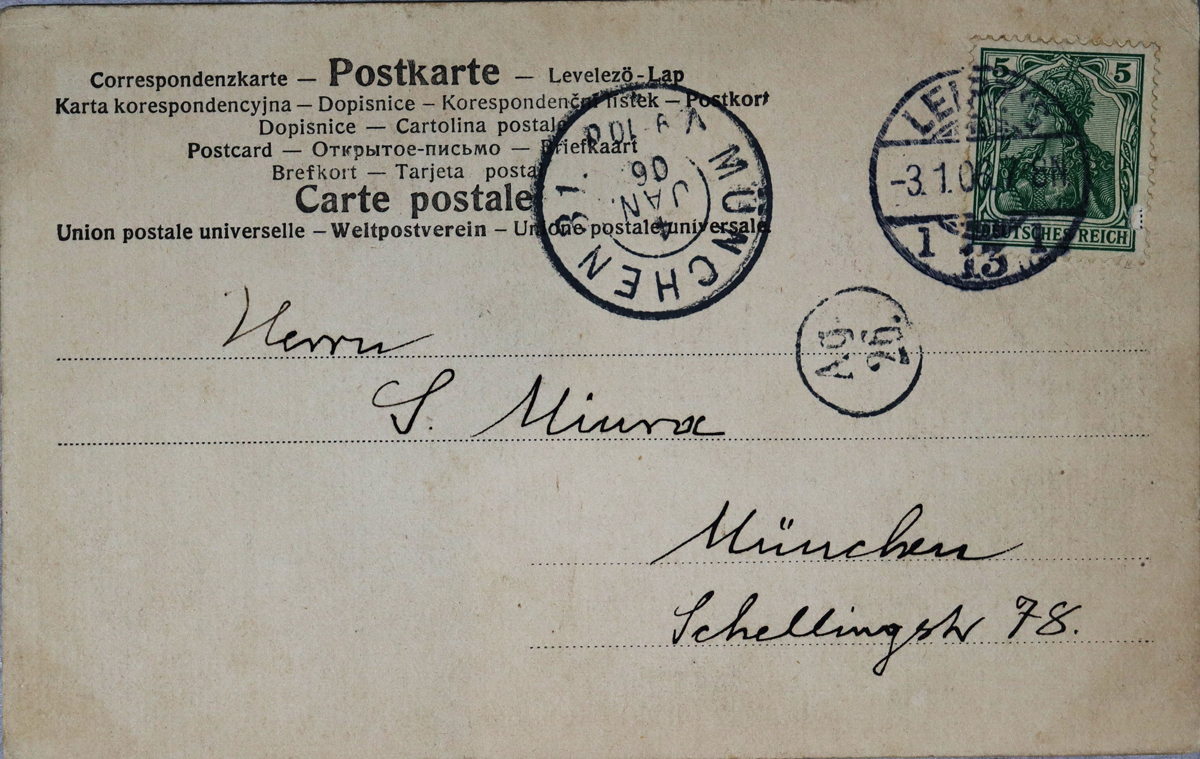 Correspondenzkarte — Postkarte — Levelező-Lap
Karta korespondencyjna — Dopisnice — Korespondenční lístek — Postkort
Dopisnice — Cartolina postale
Postcard — Открытое-письмо — Briefkaart
Brefkort — Tarjeta postal
Carte postale
Union postale universelle — Weltpostverein — Unione postale universale
MÜNCHEN 31.
4
JAN.
06
5 5
DEUTSCHES REICH
LEIPZIG
-3.1.06.
1 13 1
Ag.
Herrn
S. Miura
München
Schellingstr 78.